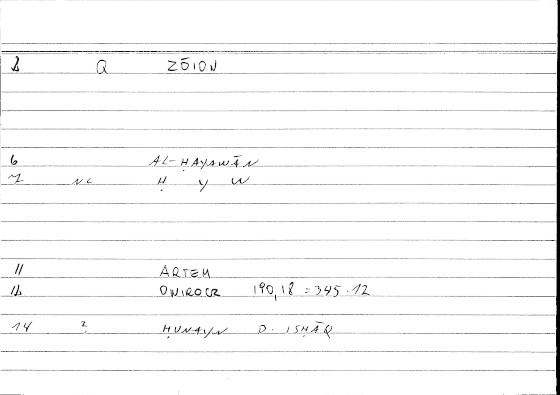 1 Q ZŌION
6 AL-ḤAYAWĀN
7 NC Ḥ Y W
11 ARTEM
12 ONIROCR 190,18 = 345.12
14 2 ḤUNAYN B. ISḤĀQ